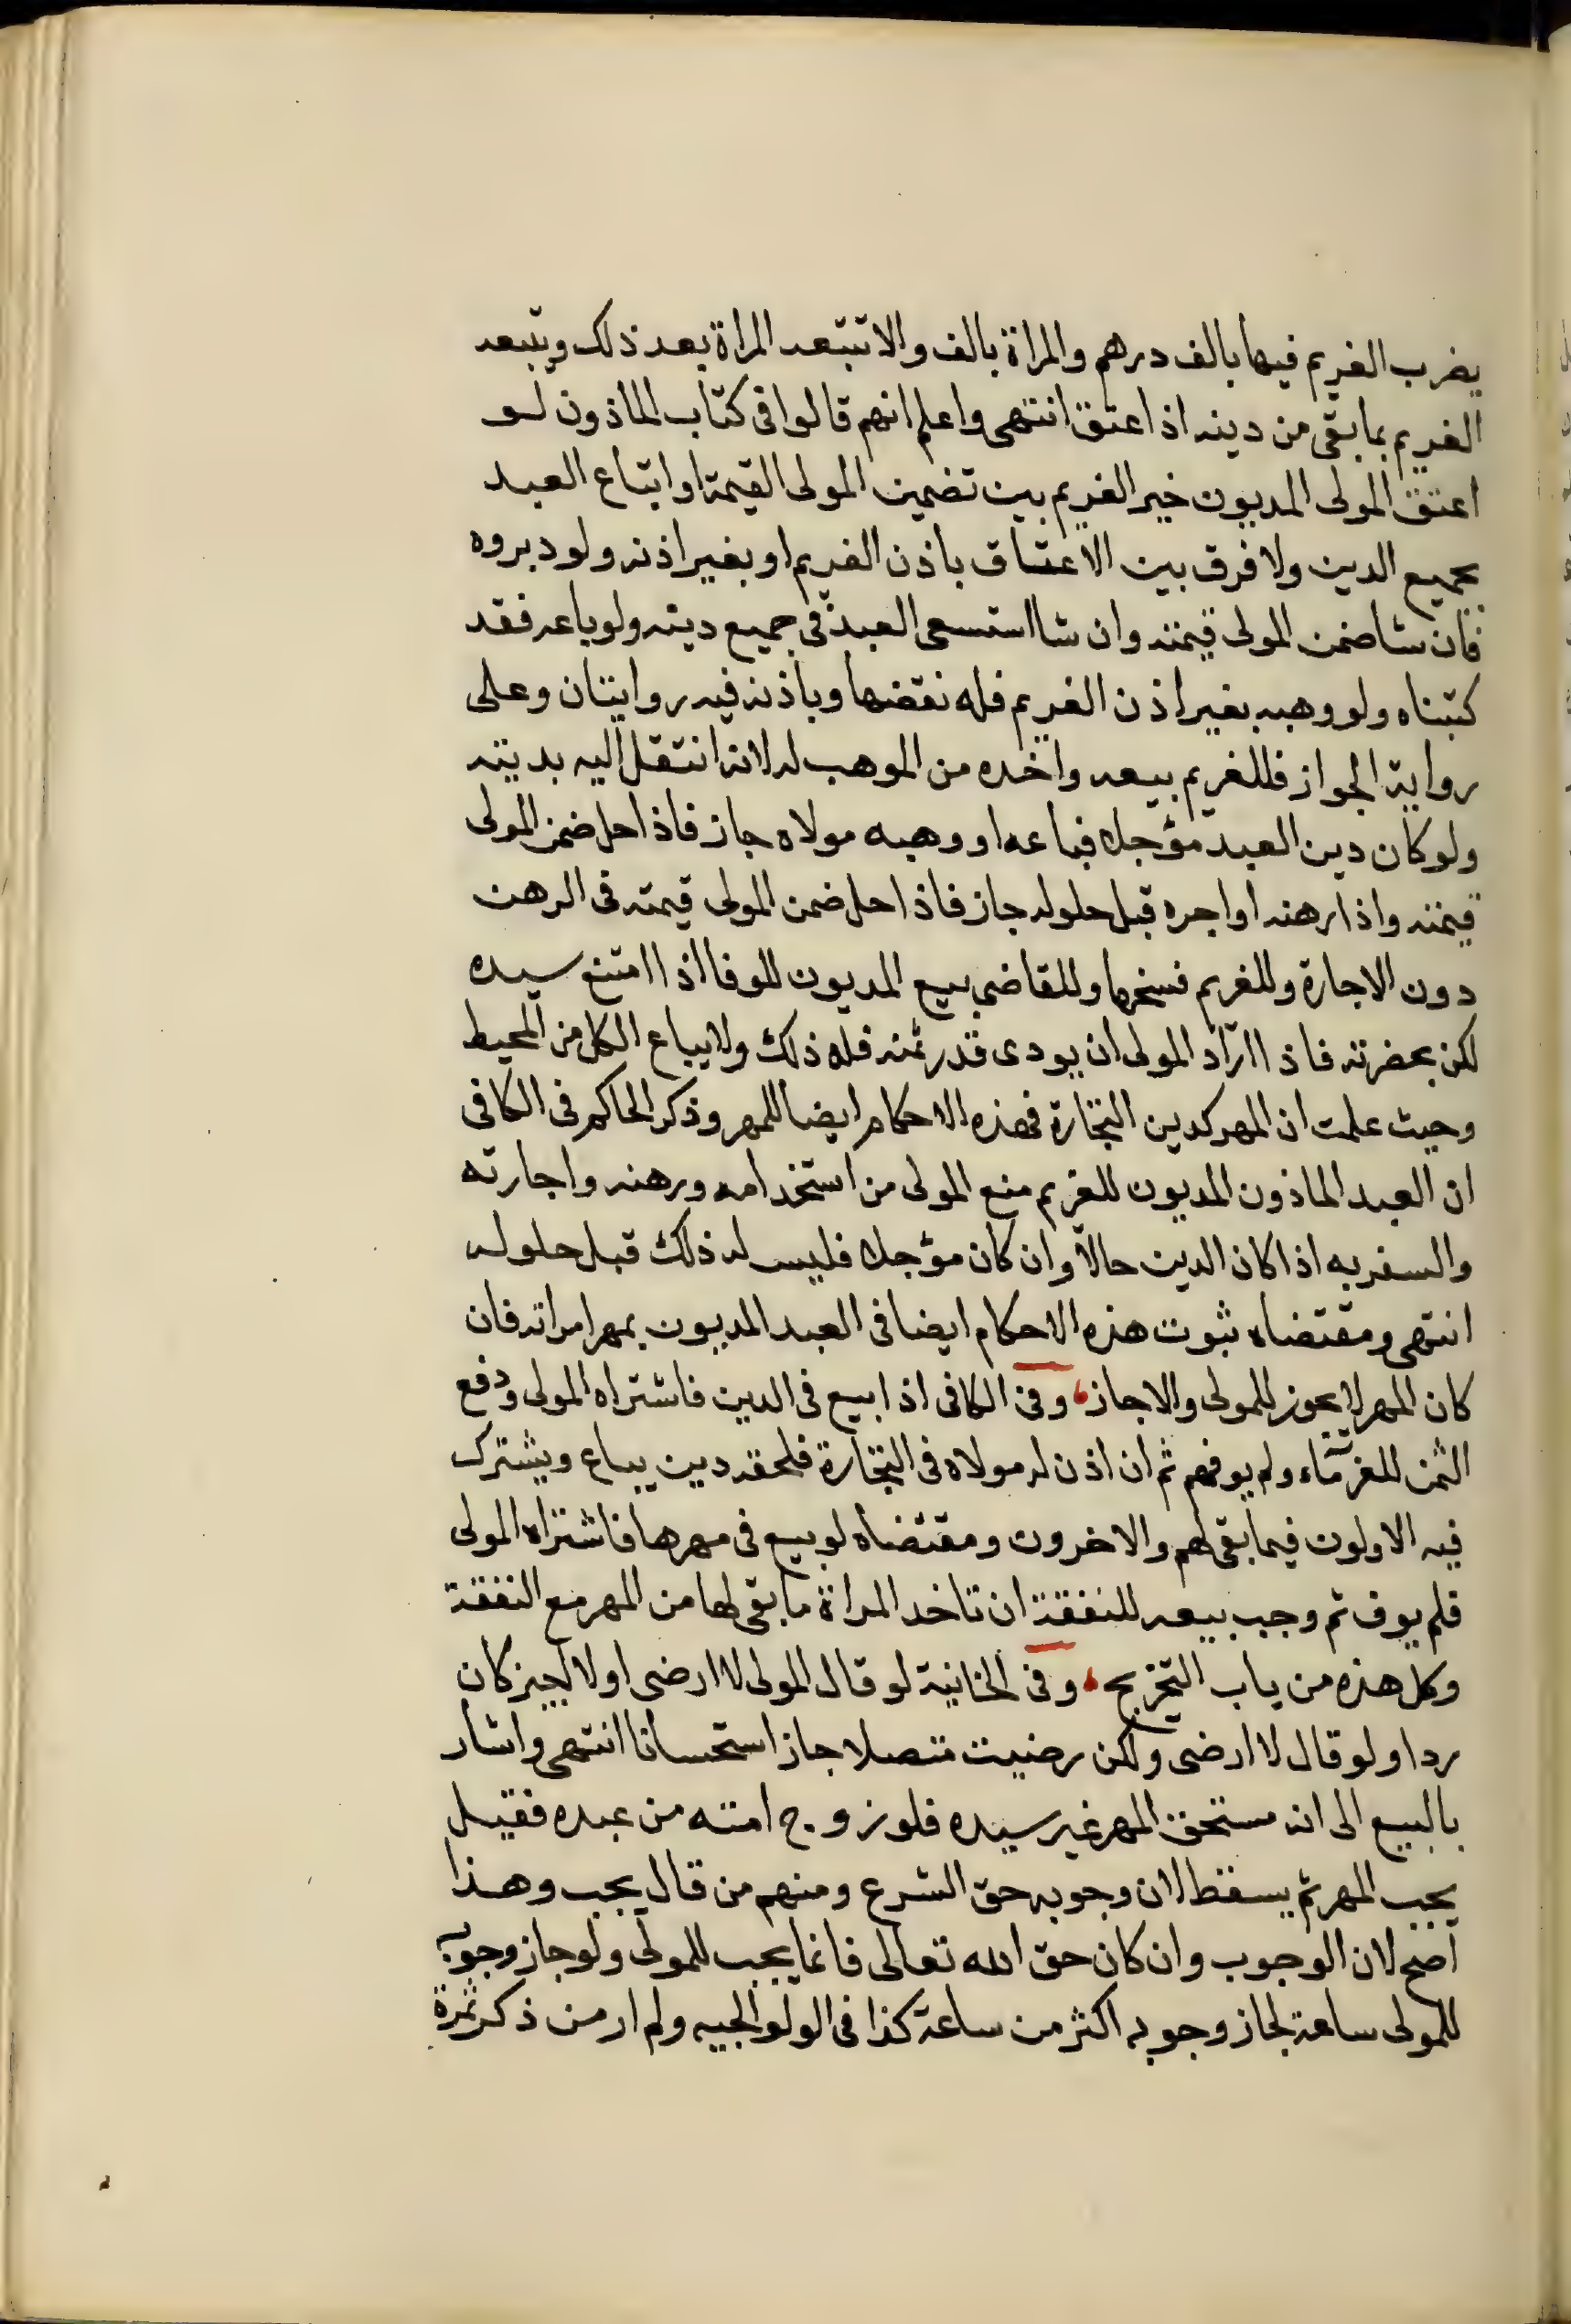 يضرب الغريم فيها بالف درهم والمراة بالف والا تتبعه المراة بعد ذلك ويتبعه
الغريم بما بقى من دينه اذا عتق انتهى واعلم انهم قالوا فى كتاب الماذون لو
اعتق المولى المديون خير الغريم بين تضمين المولى القيمة او اتباع العبد
بجميع الدين ولا فرق بين الاعتاق باذن الغريم او بغير اذنه ولو دبروه
فان شا ضمن المولى قيمته وان شا استسعى العبد فى جميع دينه ولو باعه فقد
كتبناه ولو وهبه بغير اذن الغريم فله نقضها وباذنه فيه روايتان وعلى
رواية الجواز فللغريم بيعه واخده من الموهب له لانه انتقل اليه بدينه
ولو كان دين العبد مؤجلا فباعه او وهبه مولاه جاز فاذا حل ضمن المولى
قيمته واذا رهنه او اجره قبل حلوله جاز فاذا حل ضمن المولى قيمته فى الرهن
دون الاجارة وللغريم فسخها وللقاضى بيع المديون للوفا اذا امتنع سيده
لكن بحضرته فاذا اراد المولى ان يودى قدر ثمنه فله ذلك ولا يباع الكل من المحيط
وحيث علمت ان المهر كدين التجارة فهذه الاحكام ايضا للمهر وذكر الحاكم فى الكافى
ان العبد الماذون المديون للغريم منع المولى من استخدامه ورهنه واجارته
والسفر به اذا كان الدين حالا وان كان مؤجلا فليس له ذلك قبل حلوله
انتهى ومقتضاه ثبوت هذه الاحكام ايضا فى العبد المديون بمهر امراته فان
كان المهر لا يجوز للمولى والا جاز، وفى الكافى اذا بيع فى الدين فاشتراه المولى ودفع
الثمن للغرماء ولم يوفهم ثم ان اذن له مولاه فى التجارة فلحقه دين يباع ويشترك
فيه الاولون فيما بقى لهم والاخرون ومقتضاه لو بيع فى مهرها فاشتراه المولى
فلم يوف ثم وجب بيعه للنفقة ان تاخد المراة ما بقى لها من المهر مع النفقة
وكل هذه من باب التخريج، وفى الخانية لو قال المولى لا ارضى او لا اجيز كان
ردا ولو قال لا ارضى ولكن رضيت متصلا جاز استحسانا انتهى واشار
بالبيع الى ان مستحق المهر غير سيده فلو زوج امته من عبده فقيل
يجب المهر ثم يسقط لان وجوبه حق الشرع ومنهم من قال يجب وهذا
اصح لان الوجوب وان كان حق الله تعالى فانما يجب للمولى ولو جاز وجوبه
للمولى ساعة لجاز وجوبه اكثر من ساعة كذا فى الولوالجيه ولم ار من ذكر ثمرة